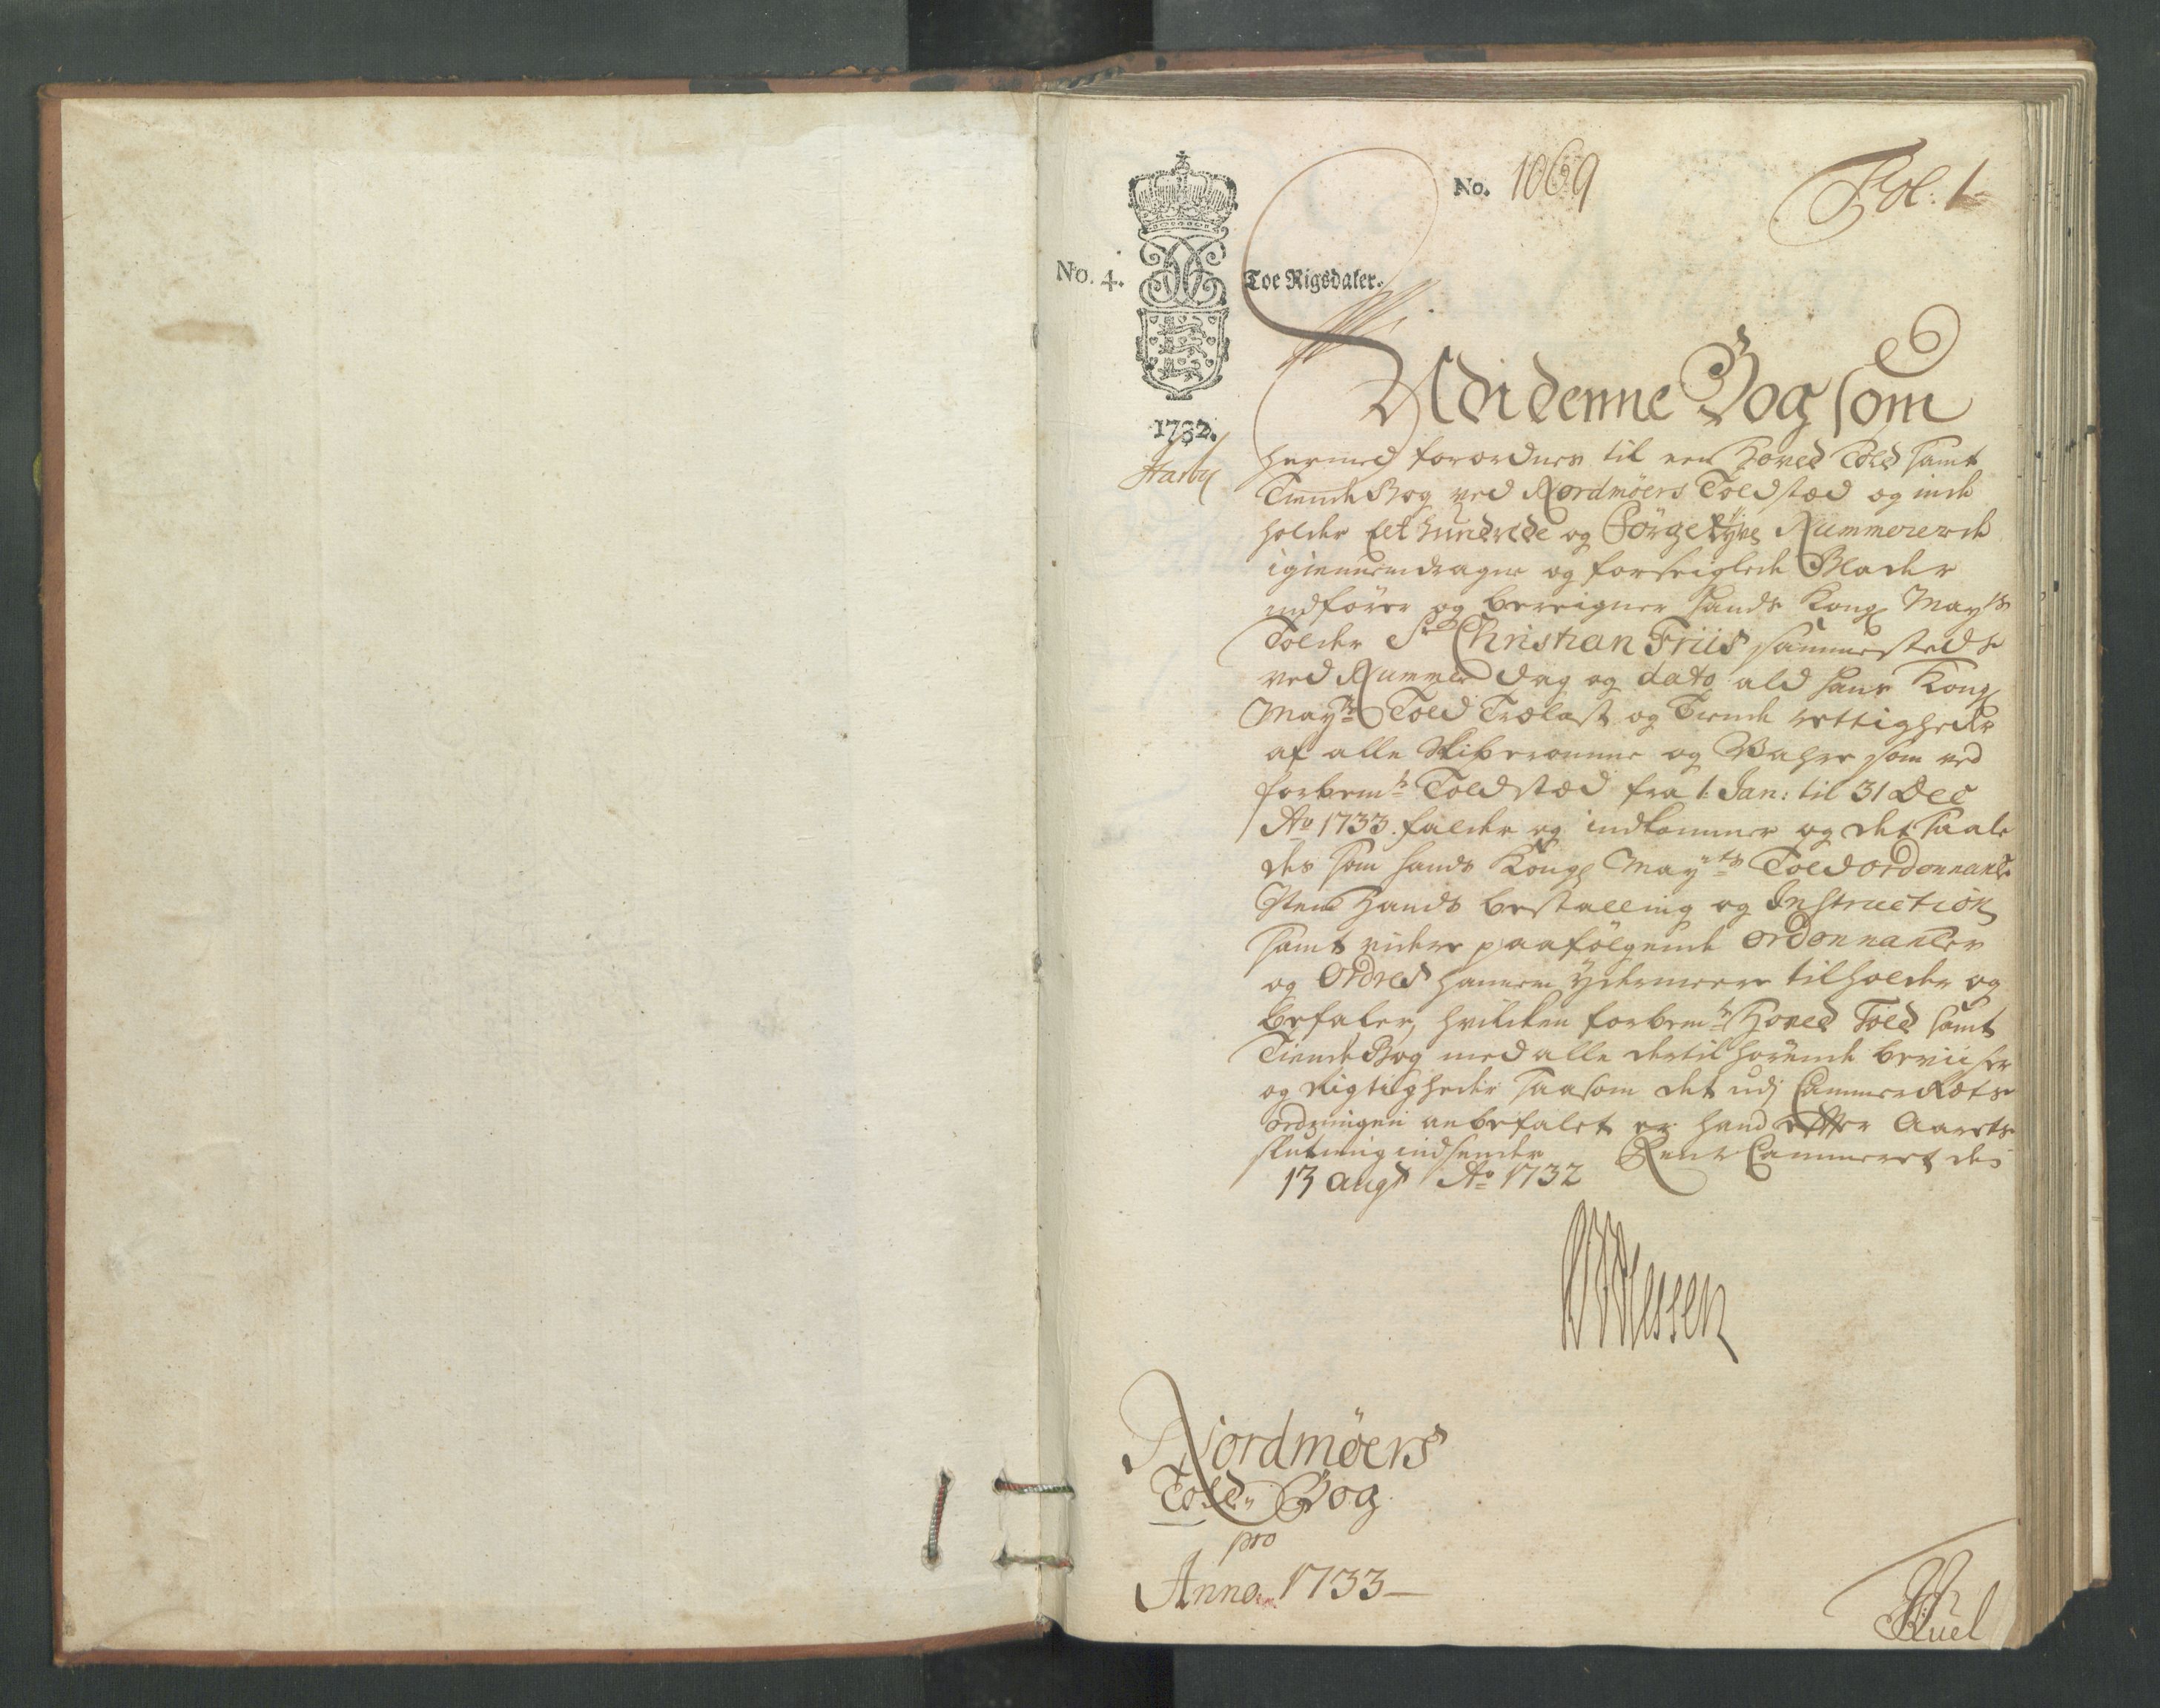 No. 1069
Fol: 1
No. 4.
Toe Rigsdaler.
1732.
Udi denne Bog som
hermed forordnes til een Hoved Told samt
Tiende Bog ved Nordmöers Toldstæd og inde
holder Eet hundrede og Förgetÿve Nummererede
igiennemdragne og forseiglede Blader
indförer og beregner hands Kongl May:ts
Tolder Sr Christian Friis sammestedts
ved Nummer dag og dato ald hans Kongl
May:ts Told Trælast og Tiende rettigheder
af alle Skiberomme og Wahre som ved
forbem:te Toldstæd fra 1 Jan: til 31 Dec
Ao 1733. falder og indkommer og det saale
des som hands Kongl May:ts Told ordonnantz
Item Hands bestalling og Instruction
samt videre paafölgende ordonnantzer
og Ordres hannem ÿdermeere tilholder og
befaler, hvilcken forbem:te Hoved Told samt
Tiende Bog med alle dertil hörende beviiser
og Rigtigheder saasom det udj Cammer Rætts
ordningen anbefalet er hand efter Aarets
slutning indsender Rente Cammeret des
13 augt Ao 1732
Nordmöers
Told Bog
pro
Anno 1733